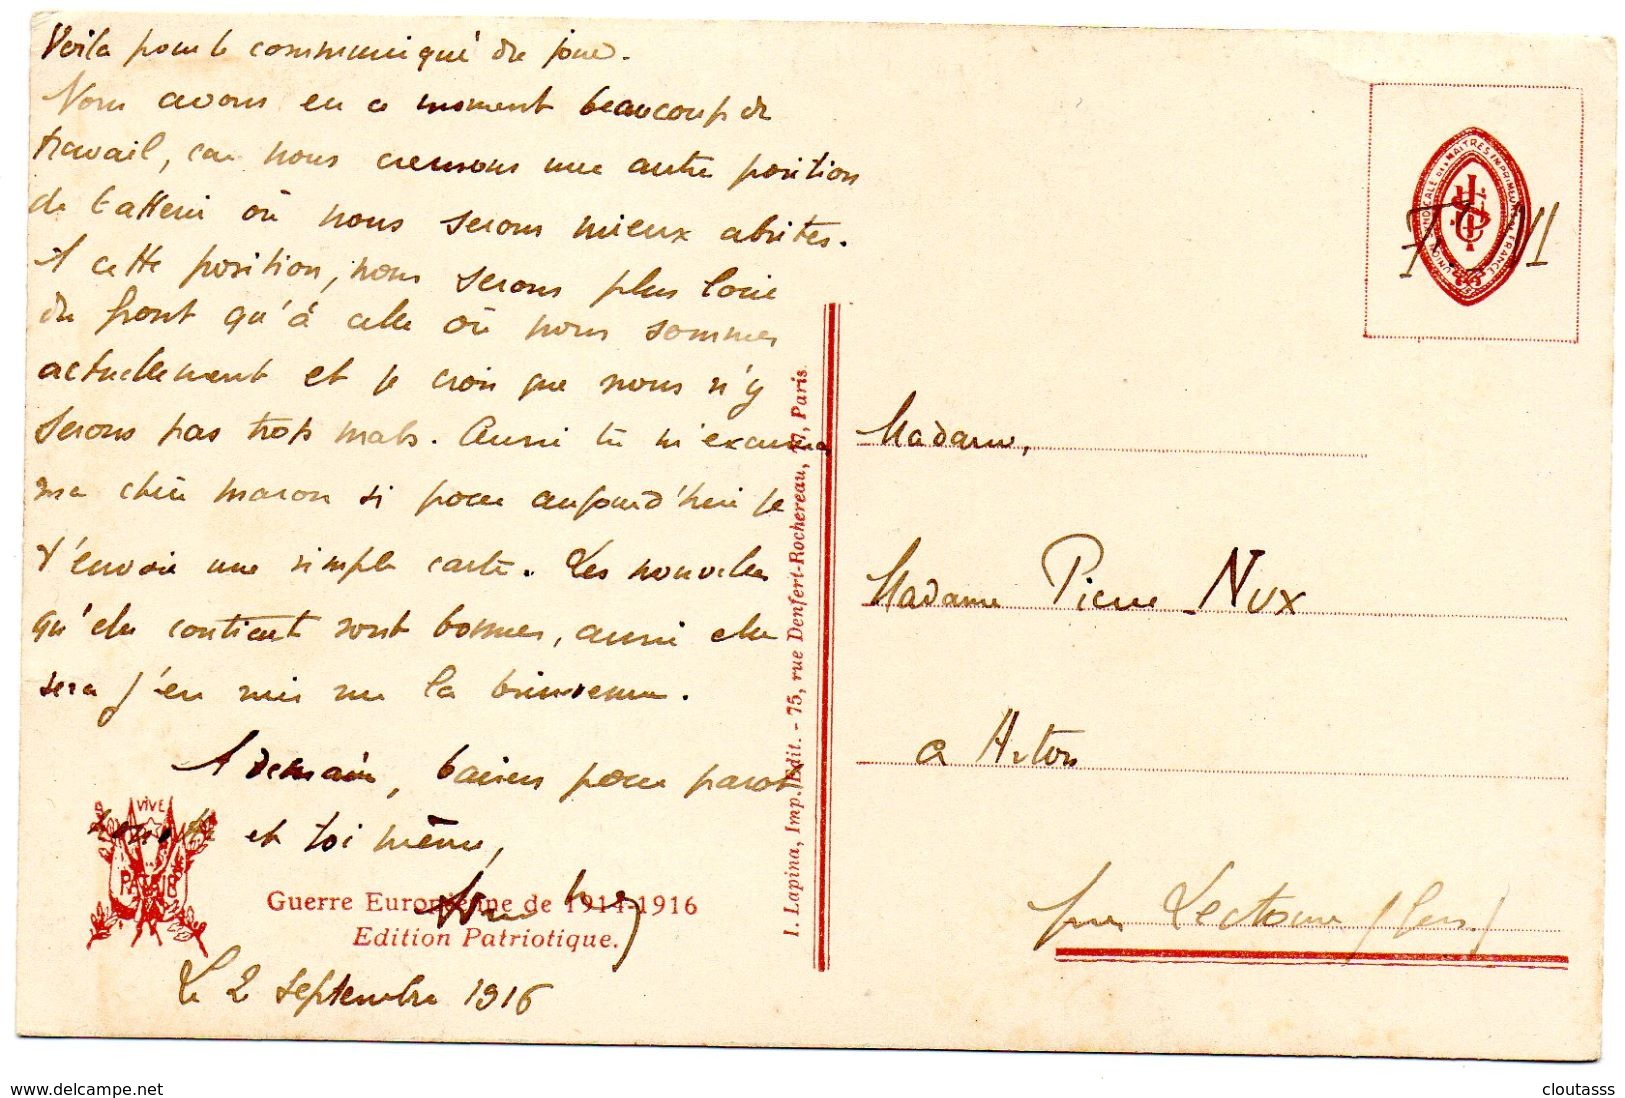 Voilà pour le communiqué du jour.
Nous avons en ce moment beaucoup de
travail, car nous creusons une autre position
de batterie où nous serons mieux abrités.
A cette position, nous serons plus loin
du front qu'à celle où nous sommes
actuellement et je crois que nous n'y
serons pas trop mals. Aussi tu m'excuseras
ma chère maron si pour aujourd'hui je
t'envoie une simple carte. Les nouvelles
qu'elle contient sont bonnes, aussi elle
sera j'en suis sur la bienvenue.
A demain, baisers pour
et toi même,
Le 2 septembre 1916
VIVE
PATRIE
Guerre Européenne de 1914-1916
Edition Patriotique.
I. Lapina, Imp. Edit. - 75, rue Denfert-Rochereau, 77, Paris
UNION SYNDICALE DES MAITRES IMPRIMEURS DE FRANCE
Madame,
Madame Pierre Nux
a Arton
par Lectoure (Gers)
www.delcampe.net
cloutasss